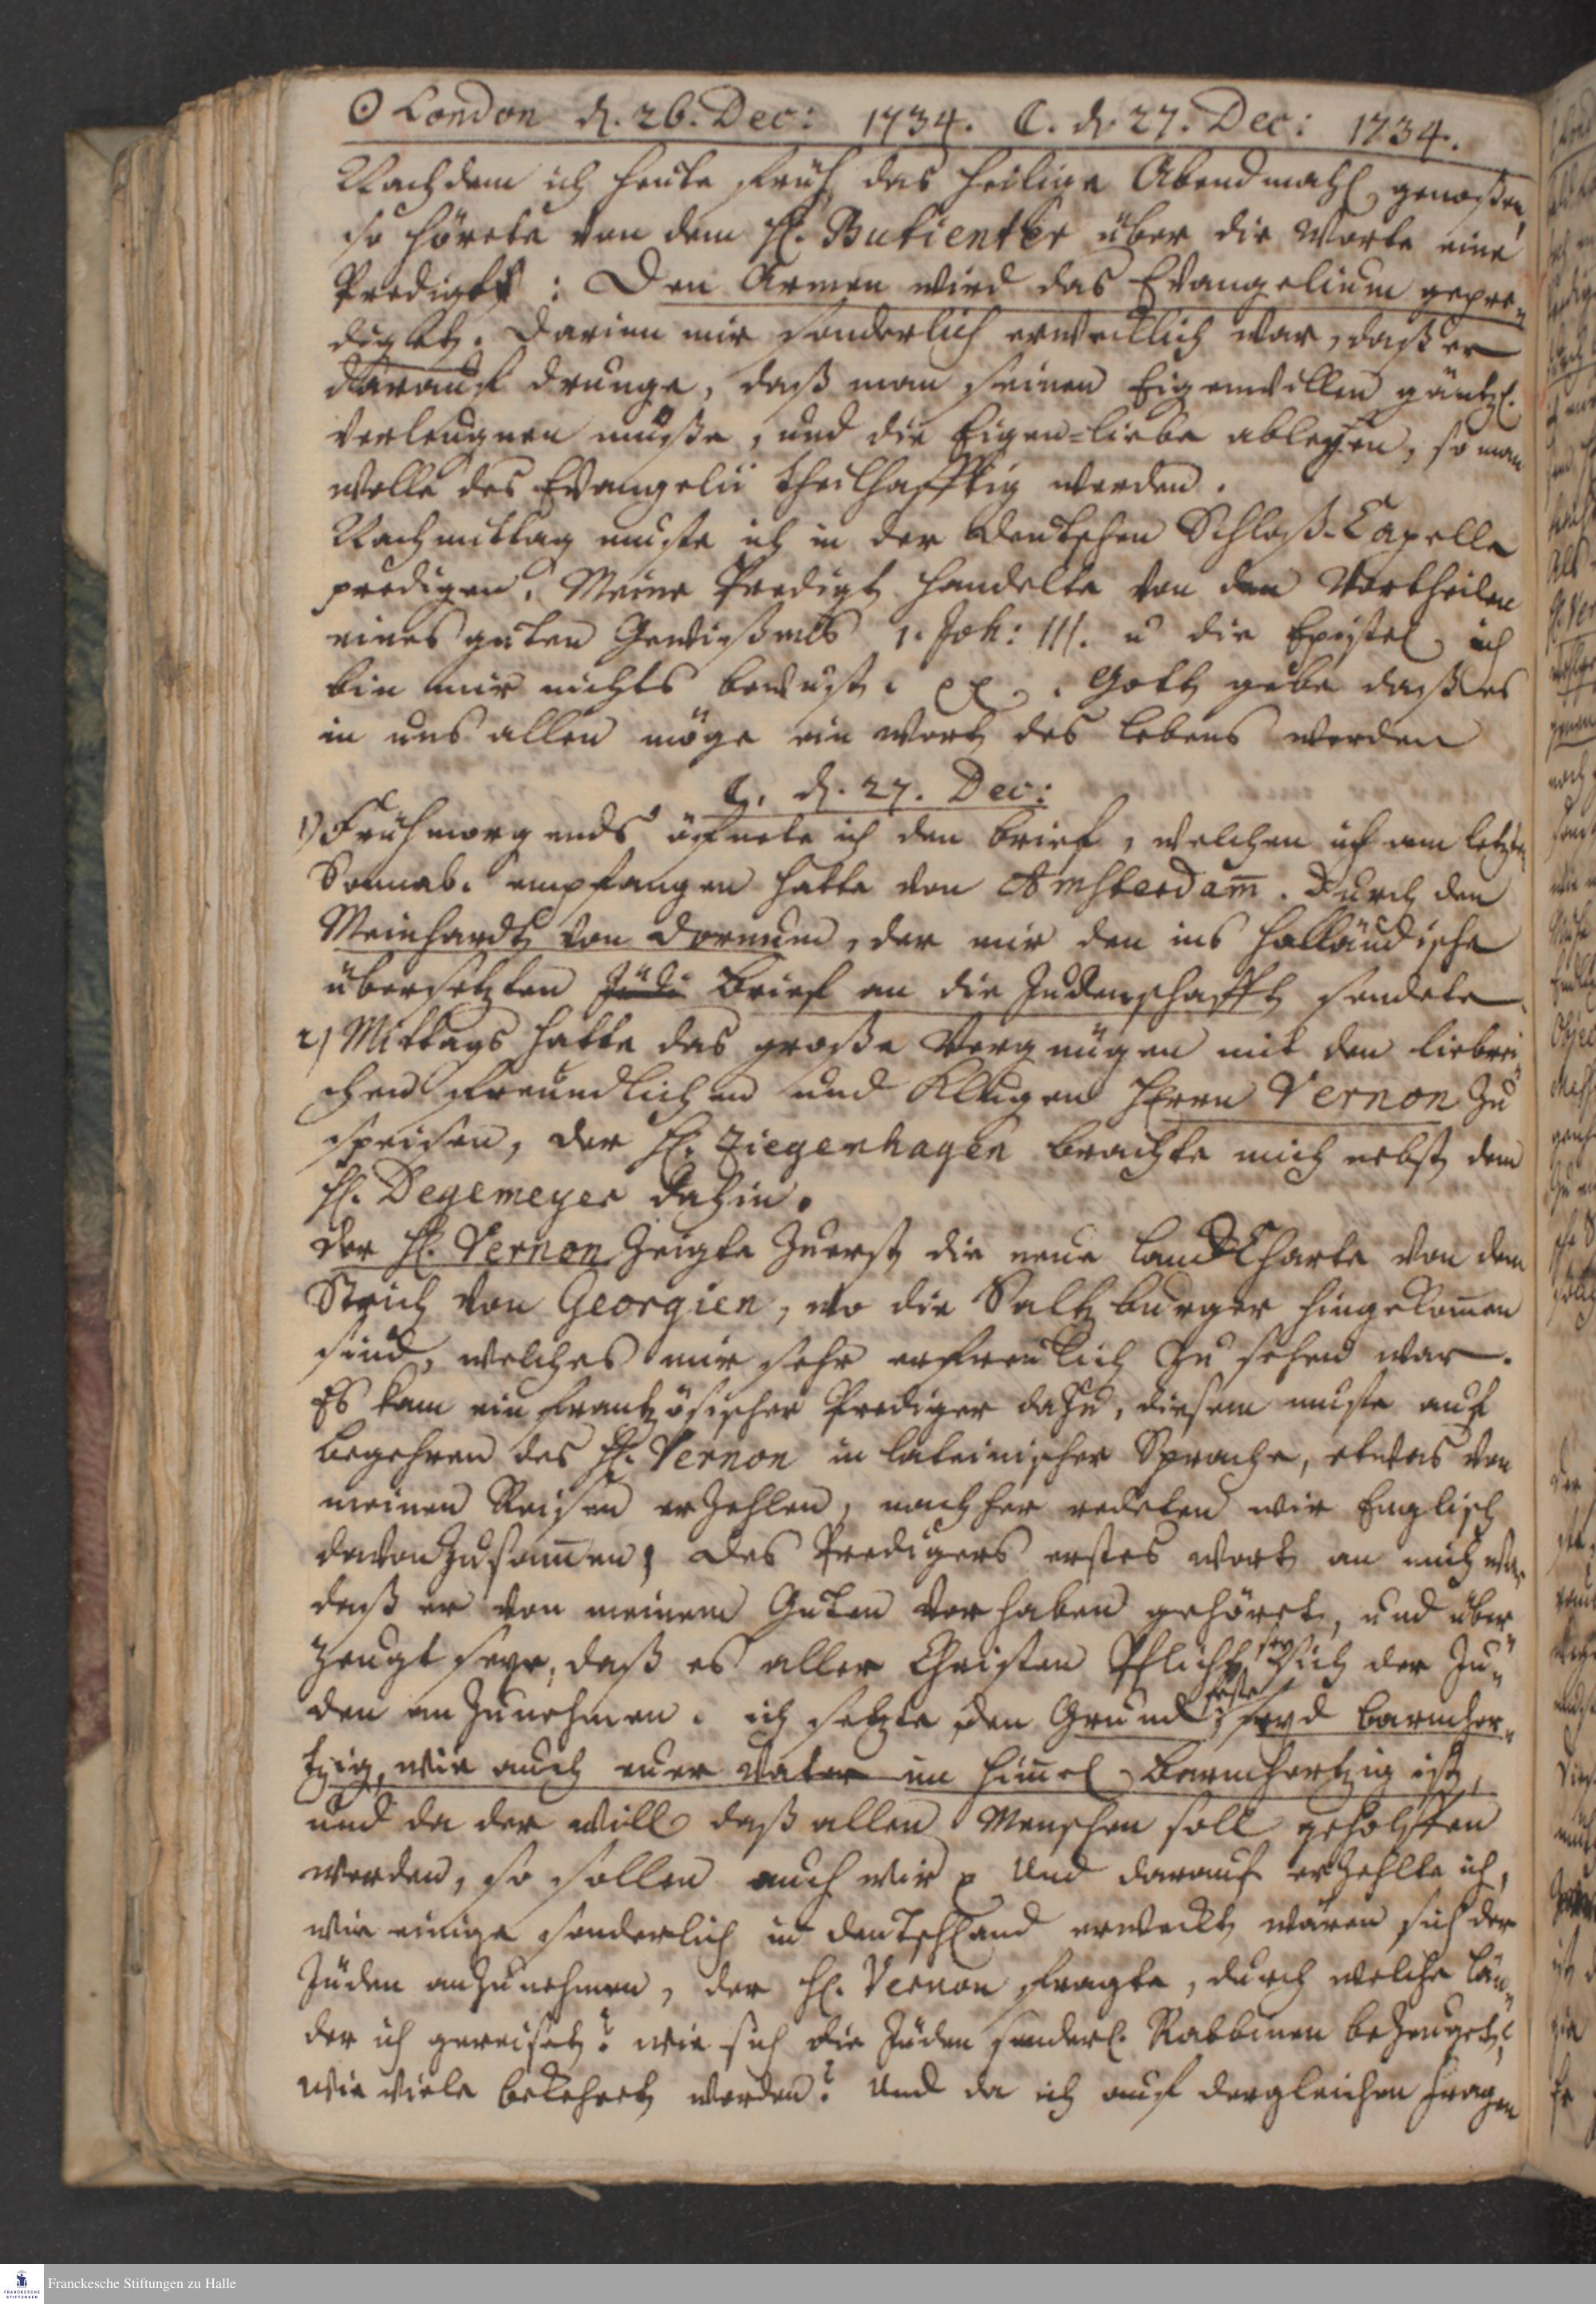 ☉ London d. 26. Dec: 1734. ☾. d. 27. Dec: 1734.
Nachdem ich heute früh das heilige Abendmahl genoßen,
so hörete von dem H. Butienter über die Worte eine
Predigt: Den Armen wird das Evangelium gepre-
diget. Darinn mir sonderlich erwecklich war, daß er
darauf drunge, daß man seinen Eigenwillen gäntzl.
verleugnen müße, und die Eigen-liebe ablegen, so man
wolle des Evangelii theilhafftig werden.
Nachmittag muste ich in der Deutschen Schloß-Capelle
predigen. Meine Predigt handelte von den Vortheilen
eines guten Gewißens 1. Joh: III. u die Epistel ich
bin mir nichts bewust. Gott gebe daß es
in uns allen möge ein Wort des Lebens werden
☾. d. 27. Dec:
1) Frühmorgends öfnete ich den Brief, welchen ich am letzten
Sonnab. empfangen hatte von Amsterdam. Durch den
Meinhardt von Dornum, der mir den ins Holländische
übersetzten Jüdi Brief an die Judenschafft sendete.
2) Mittags hatte das große Vergnügen mit den liebrei-
chen freundlichen und klugen Herrn Vernon zu
speisen, der H. Ziegenhagen brachte mich nebst dem
H. Degemeyer dahin.
Der H. Vernon zeigte zuerst die neue Landcharte von dem
Strich von Georgien, wo die Saltzburger hingekom̄en
sind, welches mir sehr erfreulich zu sehen war.
Es kam ein frantzösischer Prediger dazu, diesem muste auf
begehren des H. Vernon in lateinischer Sprache, etwas von
meinen Reisen erzehlen, nachher redeten wir Englisch
davon zusam̄en; Des Predigers erstes Wort an mich war
daß er von meinem Guten Vorhaben gehöret, und über-
zeugt seye, daß es aller Christen Pflicht sey sich der Ju-
den anzunehmen. ich setzte den Grund feste; seyd barmher-
tzig, wie auch euer Vater im Him̄el barmhertzig ist,
und da der will daß allen Menschen soll geholffen
werden, so sollen auch wir p Und darauf erzehlte ich,
wie einige sonderlich in Deutschland erweckt wären sich der
Jüden anzunehmen, der H. Vernon fragte, durch welche Län-
der ich gereiset? wie sich die Jüden sonderl. Rabbinen bezeuget?
wie viele bekehret worden? Und da ich auf dergleichen Fragen
Franckesche Stiftungen zu Halle